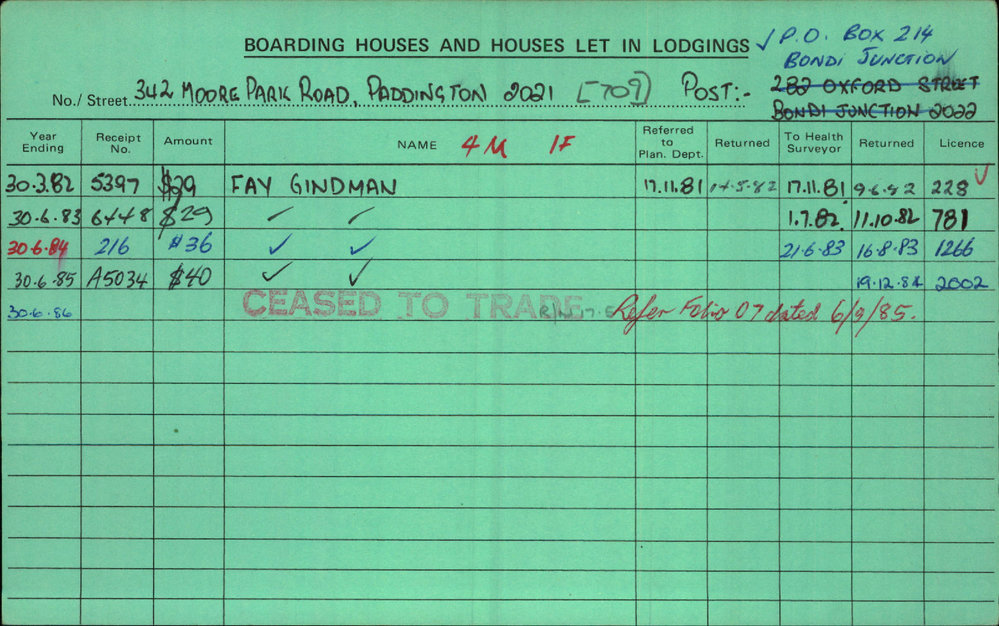 BOARDING HOUSES AND HOUSES LET IN LODGINGS ✓ P.O. BOX 214
BONDI JUNCTION
No./ Street 342 MOORE PARK ROAD, PADDINGTON 2021 [709] POST:- 282 OXFORD STREET
BONDI JUNCTION 2022
Year Ending Receipt No. Amount NAME 4M 1F Referred to Plan. Dept. Returned To Health Surveyor Returned Licence
30.3.82 5397 $29 FAY GINDMAN 17.11.81 14.5.82 17.11.81 9.6.82 228 ✓
30.6.83 6448 $29 ✓ ✓ 1.7.82. 11.10.82 781
30.6.84 216 $36 ✓ ✓ 21.6.83 16.8.83 1266
30.6.85 A5034 $40 ✓ ✓ 19.12.84 2002
30.6.86 CEASED TO TRADE Refer Folio 07 dated 6/9/85.